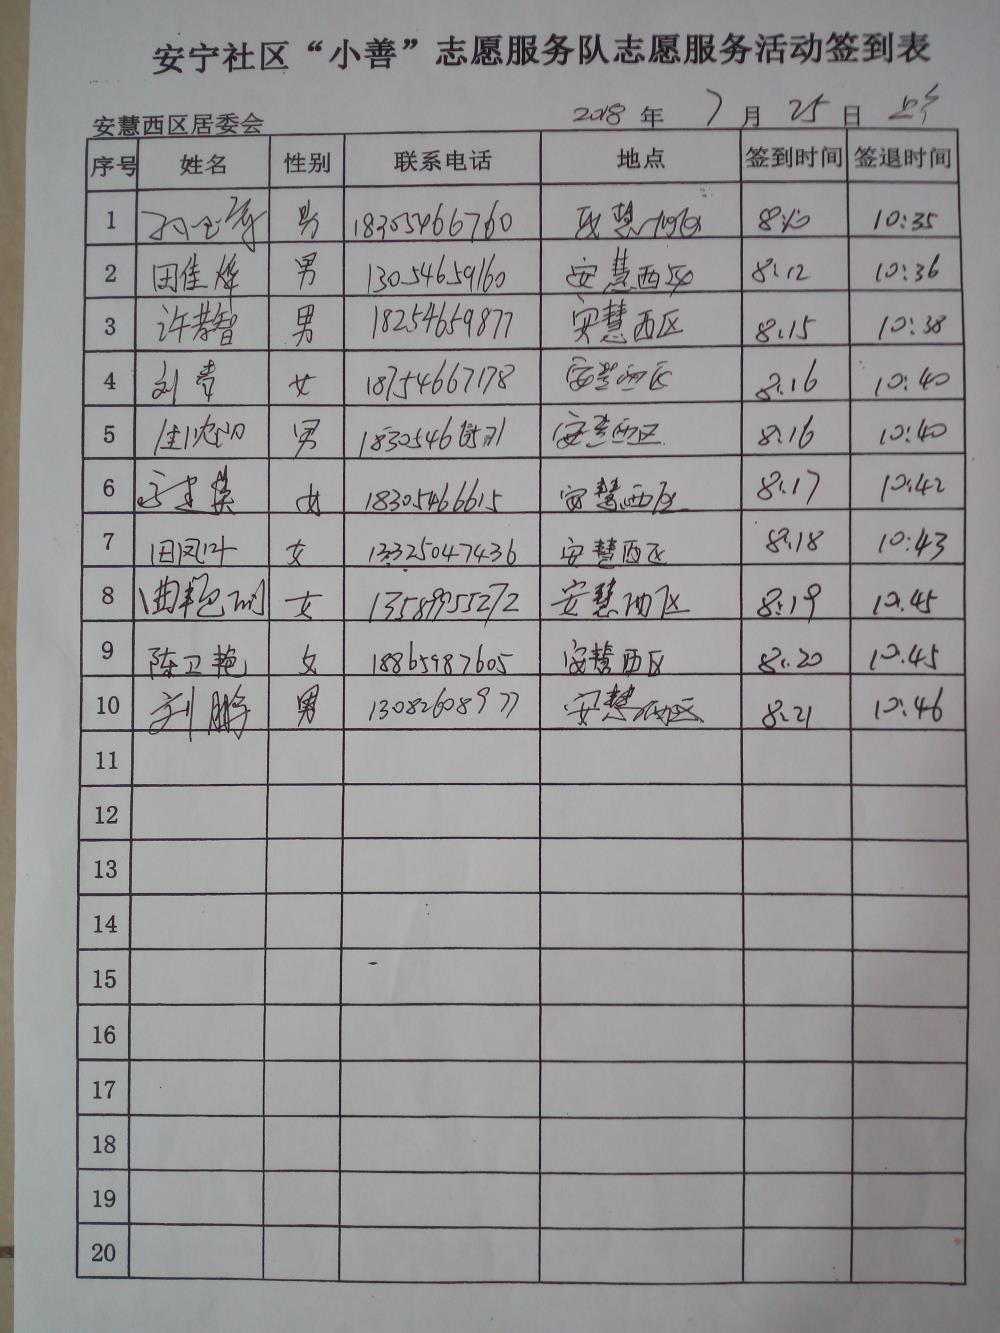 安宁社区“小善”志愿服务队志愿服务活动签到表
安慧西区居委会 2018 年 7 月 25 日 上午
序号 姓名 性别 联系电话 地点 签到时间 签退时间
1 男 18305466760 安慧西区 8:10 10:35
2 田佳烨 男 13054659160 安慧西区 8:12 10:36
3 许孝智 男 18254659877 安慧西区 8:15 10:38
4 刘青 女 18754667178 安慧西区 8:16 10:40
5 男 安慧西区 8:16 10:40
6 女 18305466615 安慧西区 8:17 10:42
7 田凤叶 女 13325047436 安慧西区 8:18 10:43
8 曲艳丽 女 13589955272 安慧西区 8:19 10:45
9 陈卫艳 女 18865987605 安慧西区 8:20 10:45
10 刘鹏 男 13082608977 安慧西区 8:21 10:46
11
12
13
14
15
16
17
18
19
20